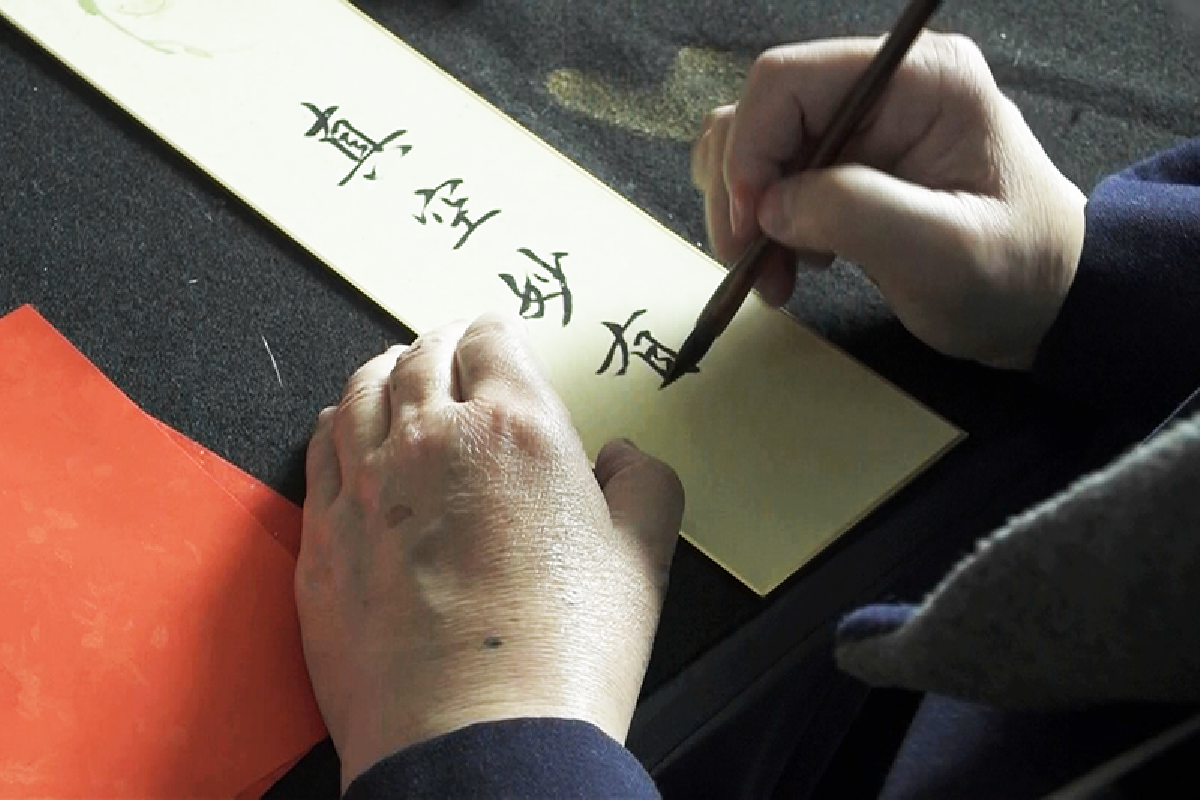 真空妙有